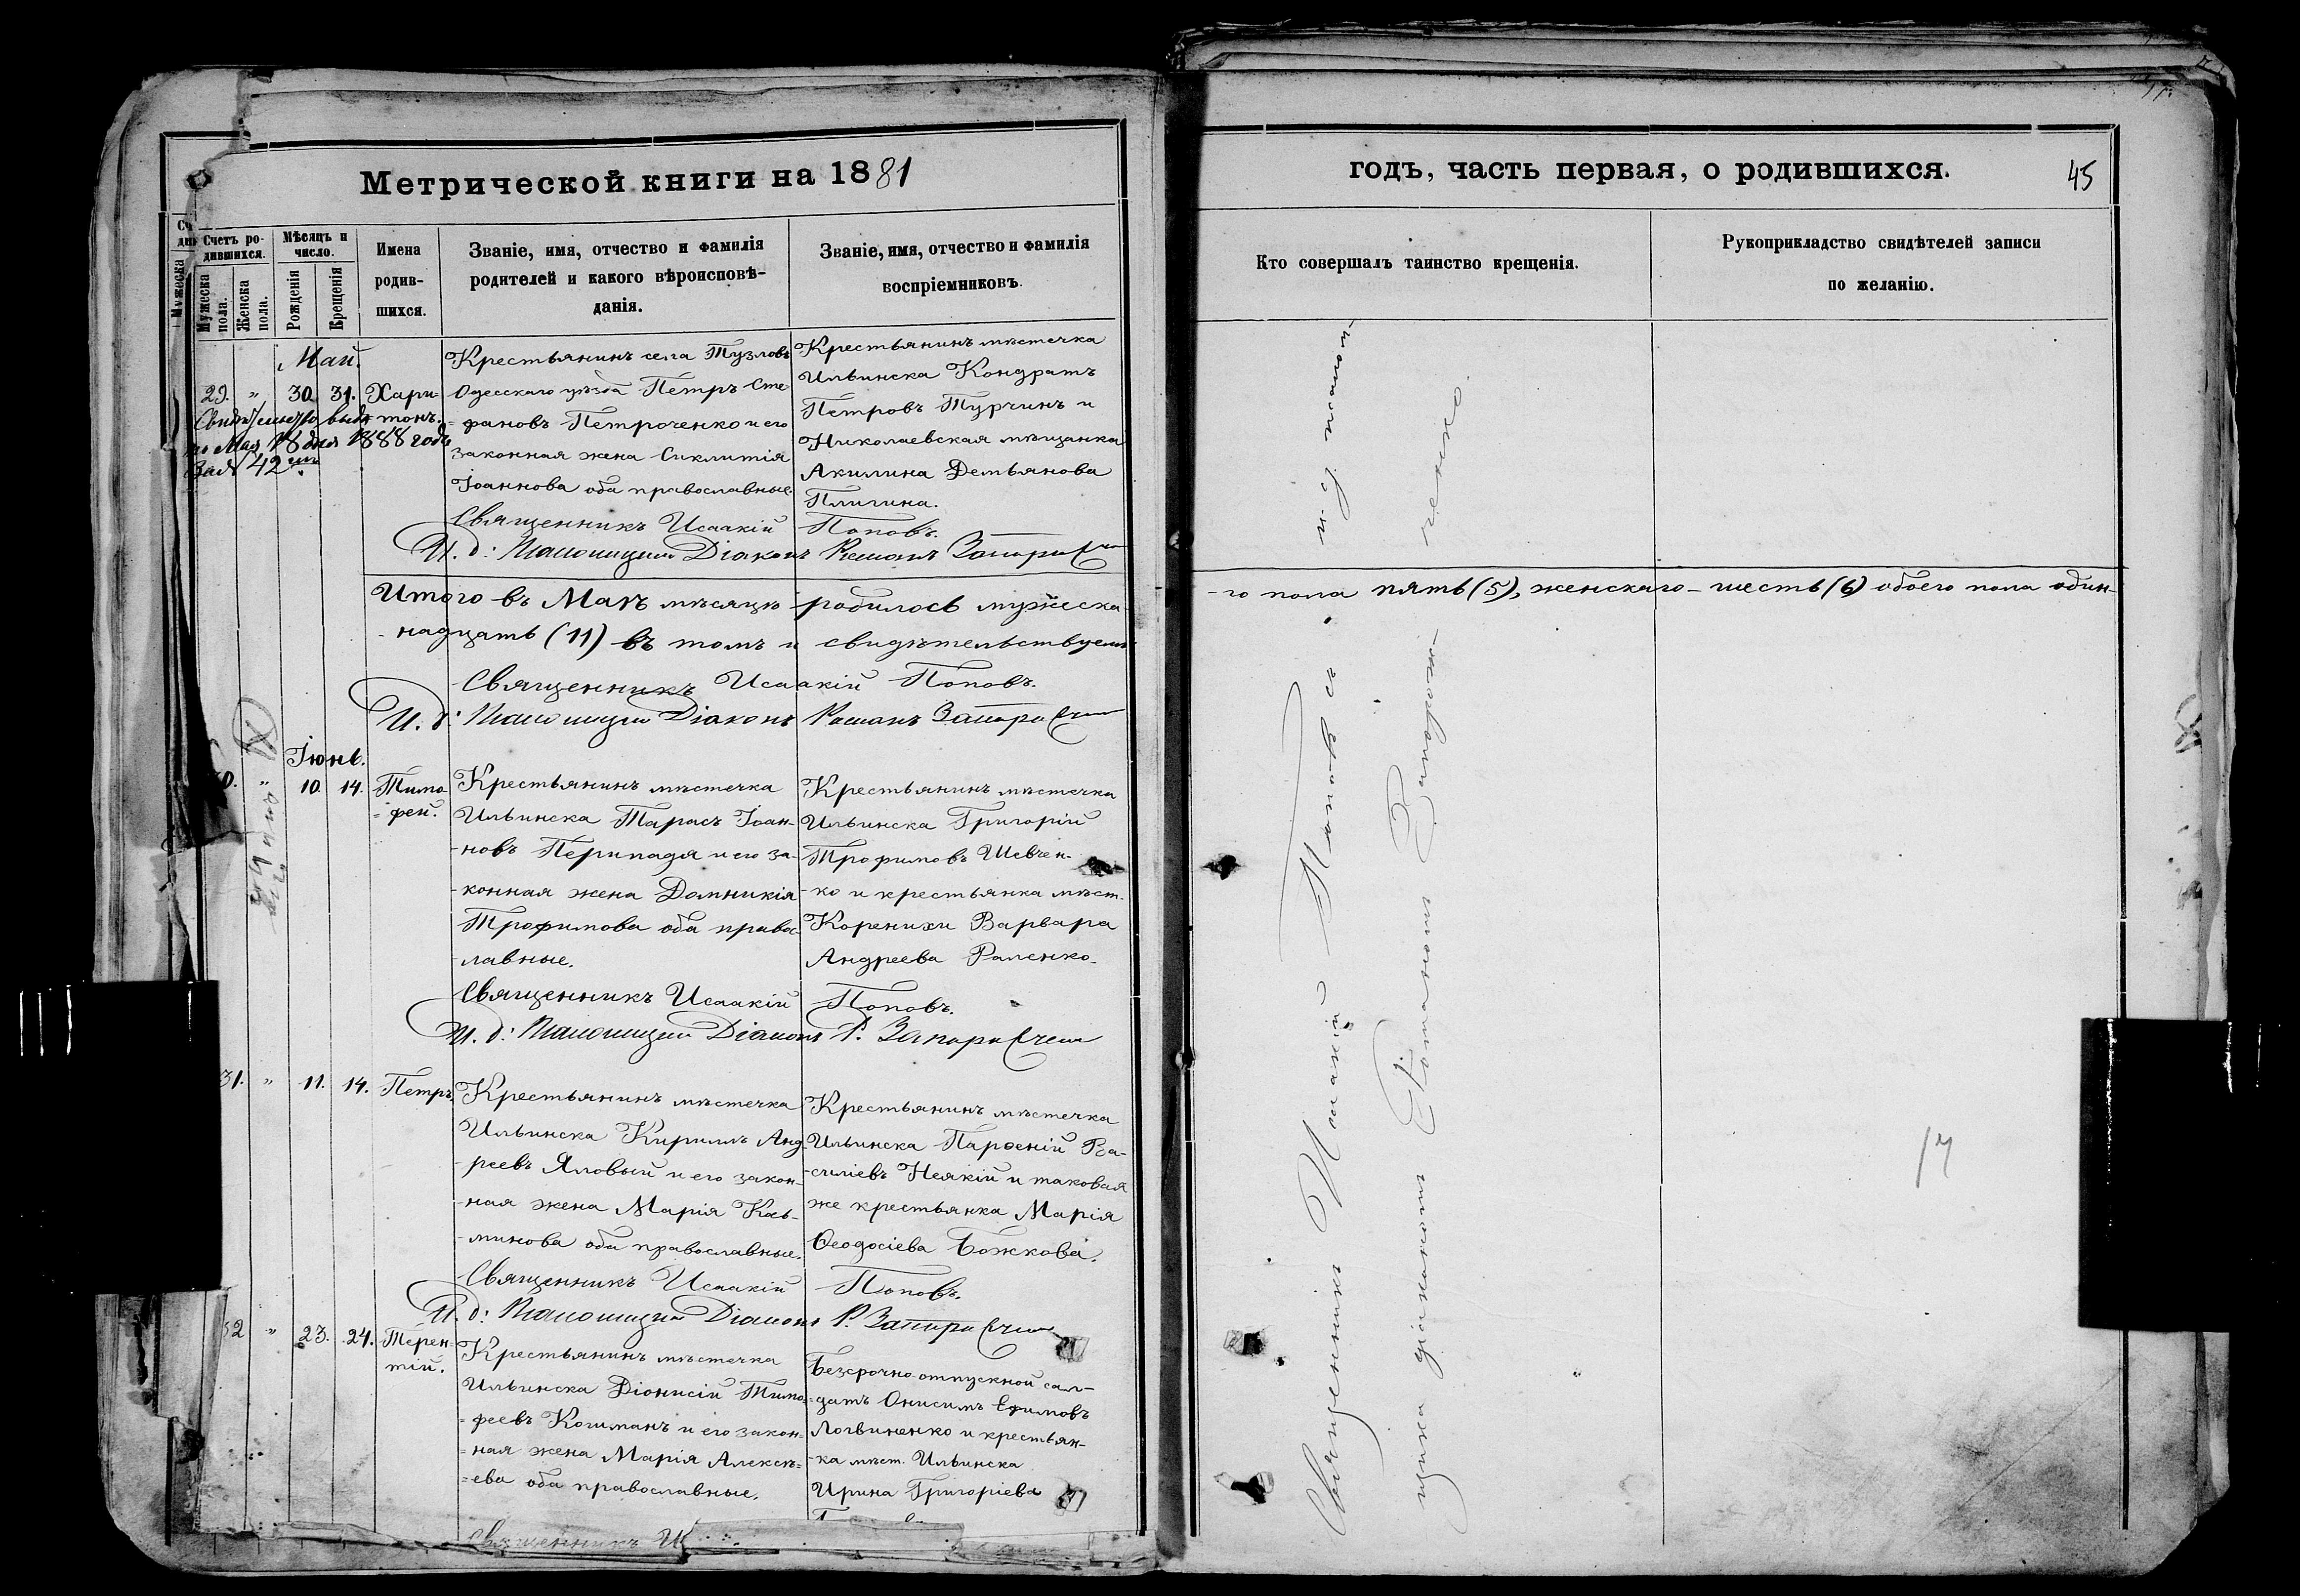 Метрической книги на 1881
годъ, часть первая, о родившихся.
45
Счетъ ро-
дившихся.
Мужеска
пола.
Женска
пола.
Мѣсяцъ и
число.
Рожденія
Крещенія
Имена
родив-
шихся.
Званіе, имя, отчество и фамилія
родителей и какого вѣроисповѣ-
данія.
Званіе, имя, отчество и фамилія
воспріемниковъ.
Кто совершалъ таинство крещенія.
Рукоприкладство свидѣтелей записи
по желанію.
Май.
29. " 30. 31. Хари-
тонъ.
18 дня 1888 года
за № 42
Крестьянинъ села Тузловъ
Одесскаго уѣзда Петръ Сте-
фановъ Петроченко и его
законная жена Сиклитія
Іоаннова оба православные.
Крестьянинъ мѣстечка
Ильинска Кондратъ
Петровъ Турчинъ и
Николаевская мѣщанка
Акилина Демьянова
Плигина.
Священникъ Исаакій Поповъ.
И. д: Псаломщика Діаконъ Романъ
Итого въ Маѣ мѣсяцѣ родилось мужеска-
-го пола пять (5), женскаго - шесть (6) обоего пола один-
-надцать (11) въ томъ и свидѣтельствуемъ
Священникъ Исаакій Поповъ.
И. д: Псаломщика Діаконъ Романъ
Іюнь.
30. " 10. 14. Тимо-
фей.
Крестьянинъ мѣстечка
Ильинска Тарасъ Іоан-
-новъ Перипадя и его за-
-конная жена Домникія
Трофимова оба право-
-лавные.
Крестьянинъ мѣстечка
Ильинска Григорій
Трофимовъ Шевчен-
-ко и крестьянка мѣст.
Коренихи Варвара
Андреева Раленко.
Священникъ Исаакій Поповъ.
И. д: Псаломщика Діаконъ Р.
31. " 11. 14. Петръ.
Крестьянинъ мѣстечка
Ильинска Кириллъ Анд-
-реевъ Яловый и его закон-
-ная жена Марія Кось-
-минова оба православные.
Крестьянинъ мѣстечка
Ильинска Парѳеній Ва-
-силіевъ Неякій и таковая
же крестьянка Марія
Ѳеодосіева Божкова.
Священникъ Исаакій Поповъ.
И. д: Псаломщика Діаконъ Р.
32 " 23. 24. Терен-
тій.
Крестьянинъ мѣстечка
Ильинска Діонисій Тимо-
=феевъ Коиманъ и его закон=
=ная жена Марія Алексѣ=
=ева оба православные.
Безсрочно-отпускной сол-
=датъ Онисимъ Ефимовъ
Логвиненко и крестьян-
-ка мѣст. Ильинска
Ирина Григоріева
Священникъ И
Священникъ Исаакій Поповъ съ и. д. псалом-
щика діакономъ Романомъ Запорож-
ченко.